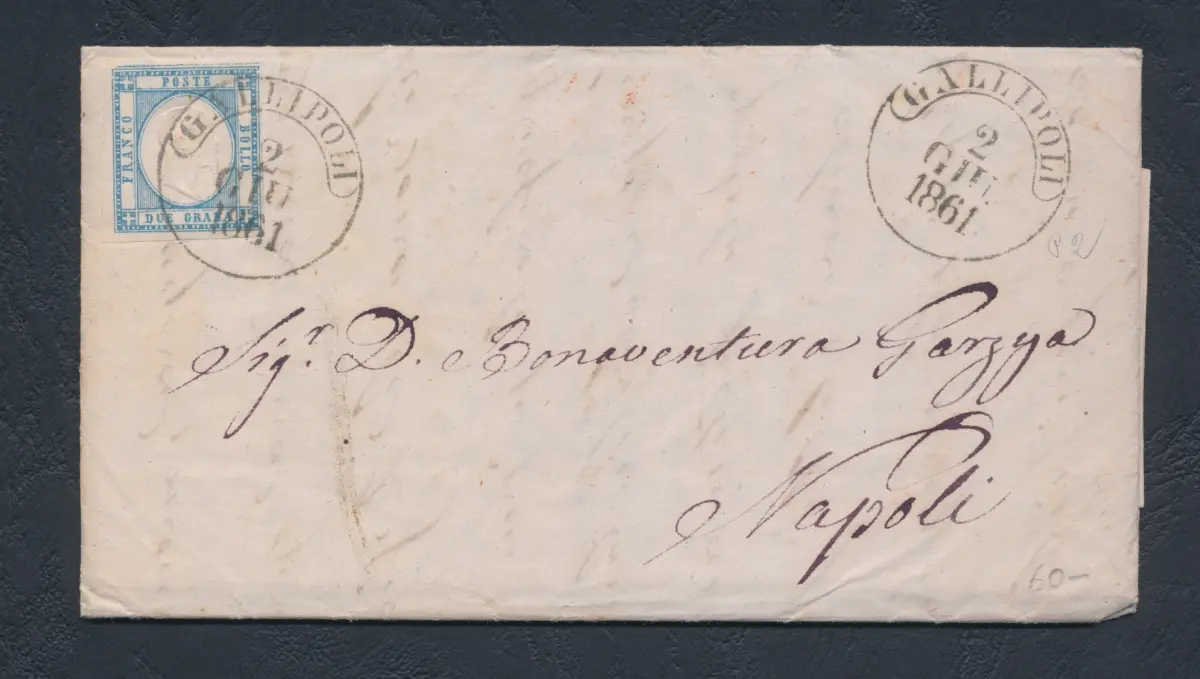 POSTE
FRANCO
BOLLO
DUE GRANA
GALLIPOLI
2
GIU
1861
GALLIPOLI
2
GIU
1861
P2
Sigr. D. Bonaventura Garzya
Napoli
60-